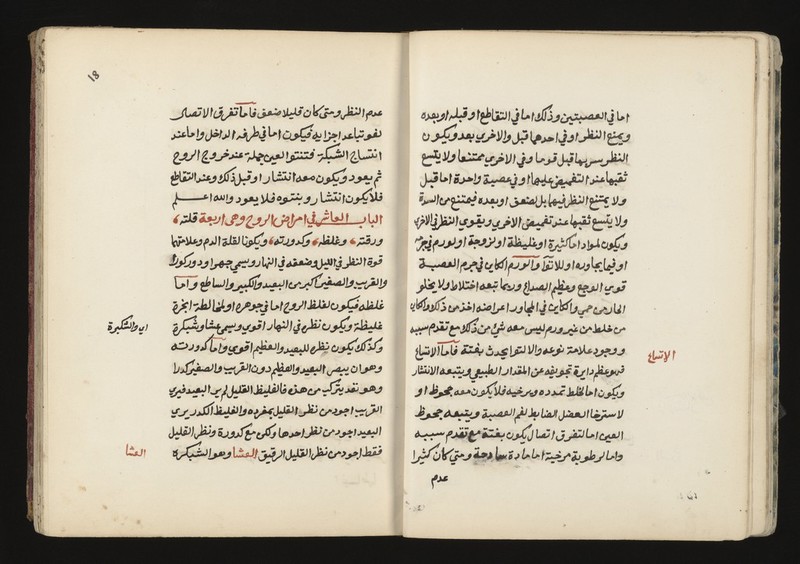 اما في العصبتين وذلك اما في التقاطع او قبله او بعده
ويمنع النظر او في احدهما قبل والاخرى بعد ويكون
النظر بسر بها قبل قوما وفي الاخرى ممتنعا ولا يتسع
ثقبها عند التغميض عليها او في عصبة واحدة اما قبل
ولا يمتنع النظر فيها بل يضعف او بعده فيمتنع من السدة
ولا يتسع ثقبها عند تغميض الاخرى ويقوى النظر في الاخرى
ويكون لمواد اما كثيرة او غليظة او لزوجة او لورم في جرمه
او فيما يجاوره او للالتواء والورم الكاين في جرم العصبة
قوى الوجع وعظم الصداع وربما تبعه اختلاط ولا يخلو
الحار من حمى والكاين في المجاور اعراضه اخف من ذلك والكاين
من خلط من غير ورم ليس معه شيء من ذلك مع تقدم سببه
ووجود علامة نوعه والالتوا يحدث بغتة فاما الاتساع
فهو عظم دايرة تجويفه عن المقدار الطبيعي ويتبعه الانتشار
ويكون اما لخلط تمدده ومرخيه فلا يكون معه جحوظ او
لاسترخا العضل الضابط لفم العصبة ويتبعه جحوظ
العين اما لتفرق اتصال يكون بغتة مع تقدم سببه
واما لرطوبة مرخية اما مادة ساذجة ومتى كان كثيرا
عدم
الاتساع
18
عدم النظر ومتى كان قليلا ضعف فاما تفرق الاتصال
فهو تباعد اجزايه فيكون اما في طرفه الداخل واما عند
انتساج الشبكة فتنتوا العين جملة عند خروج الروح
ثم يعود ويكون معه انتشار او قبل ذلك وعند التقاطع
فلا يكون انتشار وبنتوه فلا يعود والله اعلم
الباب العاشر في امراض الروح وهي اربعة قلته
ورقته وغلظه وكدورته ويكونا لقلة الدم وعلامتها
قوة النظر في الليل وضعفه في النهار ويسمى جهر او دور كور
والقريب والصغير اكبر من البعيد والكبير والساطع واما
غلظه فيكون لغلظ الروح اما في جوهره او لمخالطة ابخرة
غليظة ويكون نظره في النهار اقوى ويسمى عشا وشبكرة
وكذلك يكون نظره للبعيد والعظيم اقوى واما كدورته
وهو ان يبصر البعيد والعظيم دون القريب والصغير كدرا
وهو نقد يتركب من هذه فالغليظ القليل لم ير البعيد فيرى
القريب اجود من نظر القليل بمفرده والغليظ الكدر يرى
البعيد اجود من نظر احدهما ولكن مع كدورة ونظر القليل
فقط اجود من نظر القليل الرقيق العشا وهو الشبكرة
اي والشبكرة
العشا